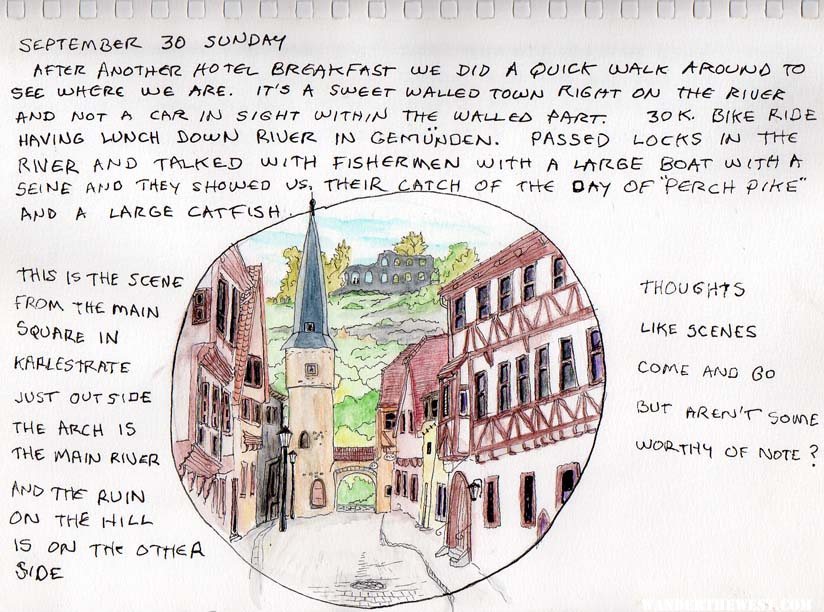 SEPTEMBER 30 SUNDAY
AFTER ANOTHER HOTEL BREAKFAST WE DID A QUICK WALK AROUND TO
SEE WHERE WE ARE. IT'S A SWEET WALLED TOWN RIGHT ON THE RIVER
AND NOT A CAR IN SIGHT WITHIN THE WALLED PART. 30K. BIKE RIDE
HAVING LUNCH DOWN RIVER IN GEMÜNDEN. PASSED LOCKS IN THE
RIVER AND TALKED WITH FISHERMEN WITH A LARGE BOAT WITH A
SEINE AND THEY SHOWED US, THEIR CATCH OF THE DAY OF "PERCH PIKE"
AND A LARGE CATFISH.
THIS IS THE SCENE
FROM THE MAIN
SQUARE IN
KARLESTRATE
JUST OUTSIDE
THE ARCH IS
THE MAIN RIVER
AND THE RUIN
ON THE HILL
IS ON THE OTHER
SIDE
THOUGHTS
LIKE SCENES
COME AND GO
BUT AREN'T SOME
WORTHY OF NOTE?
WANDERTHEWEST.COM